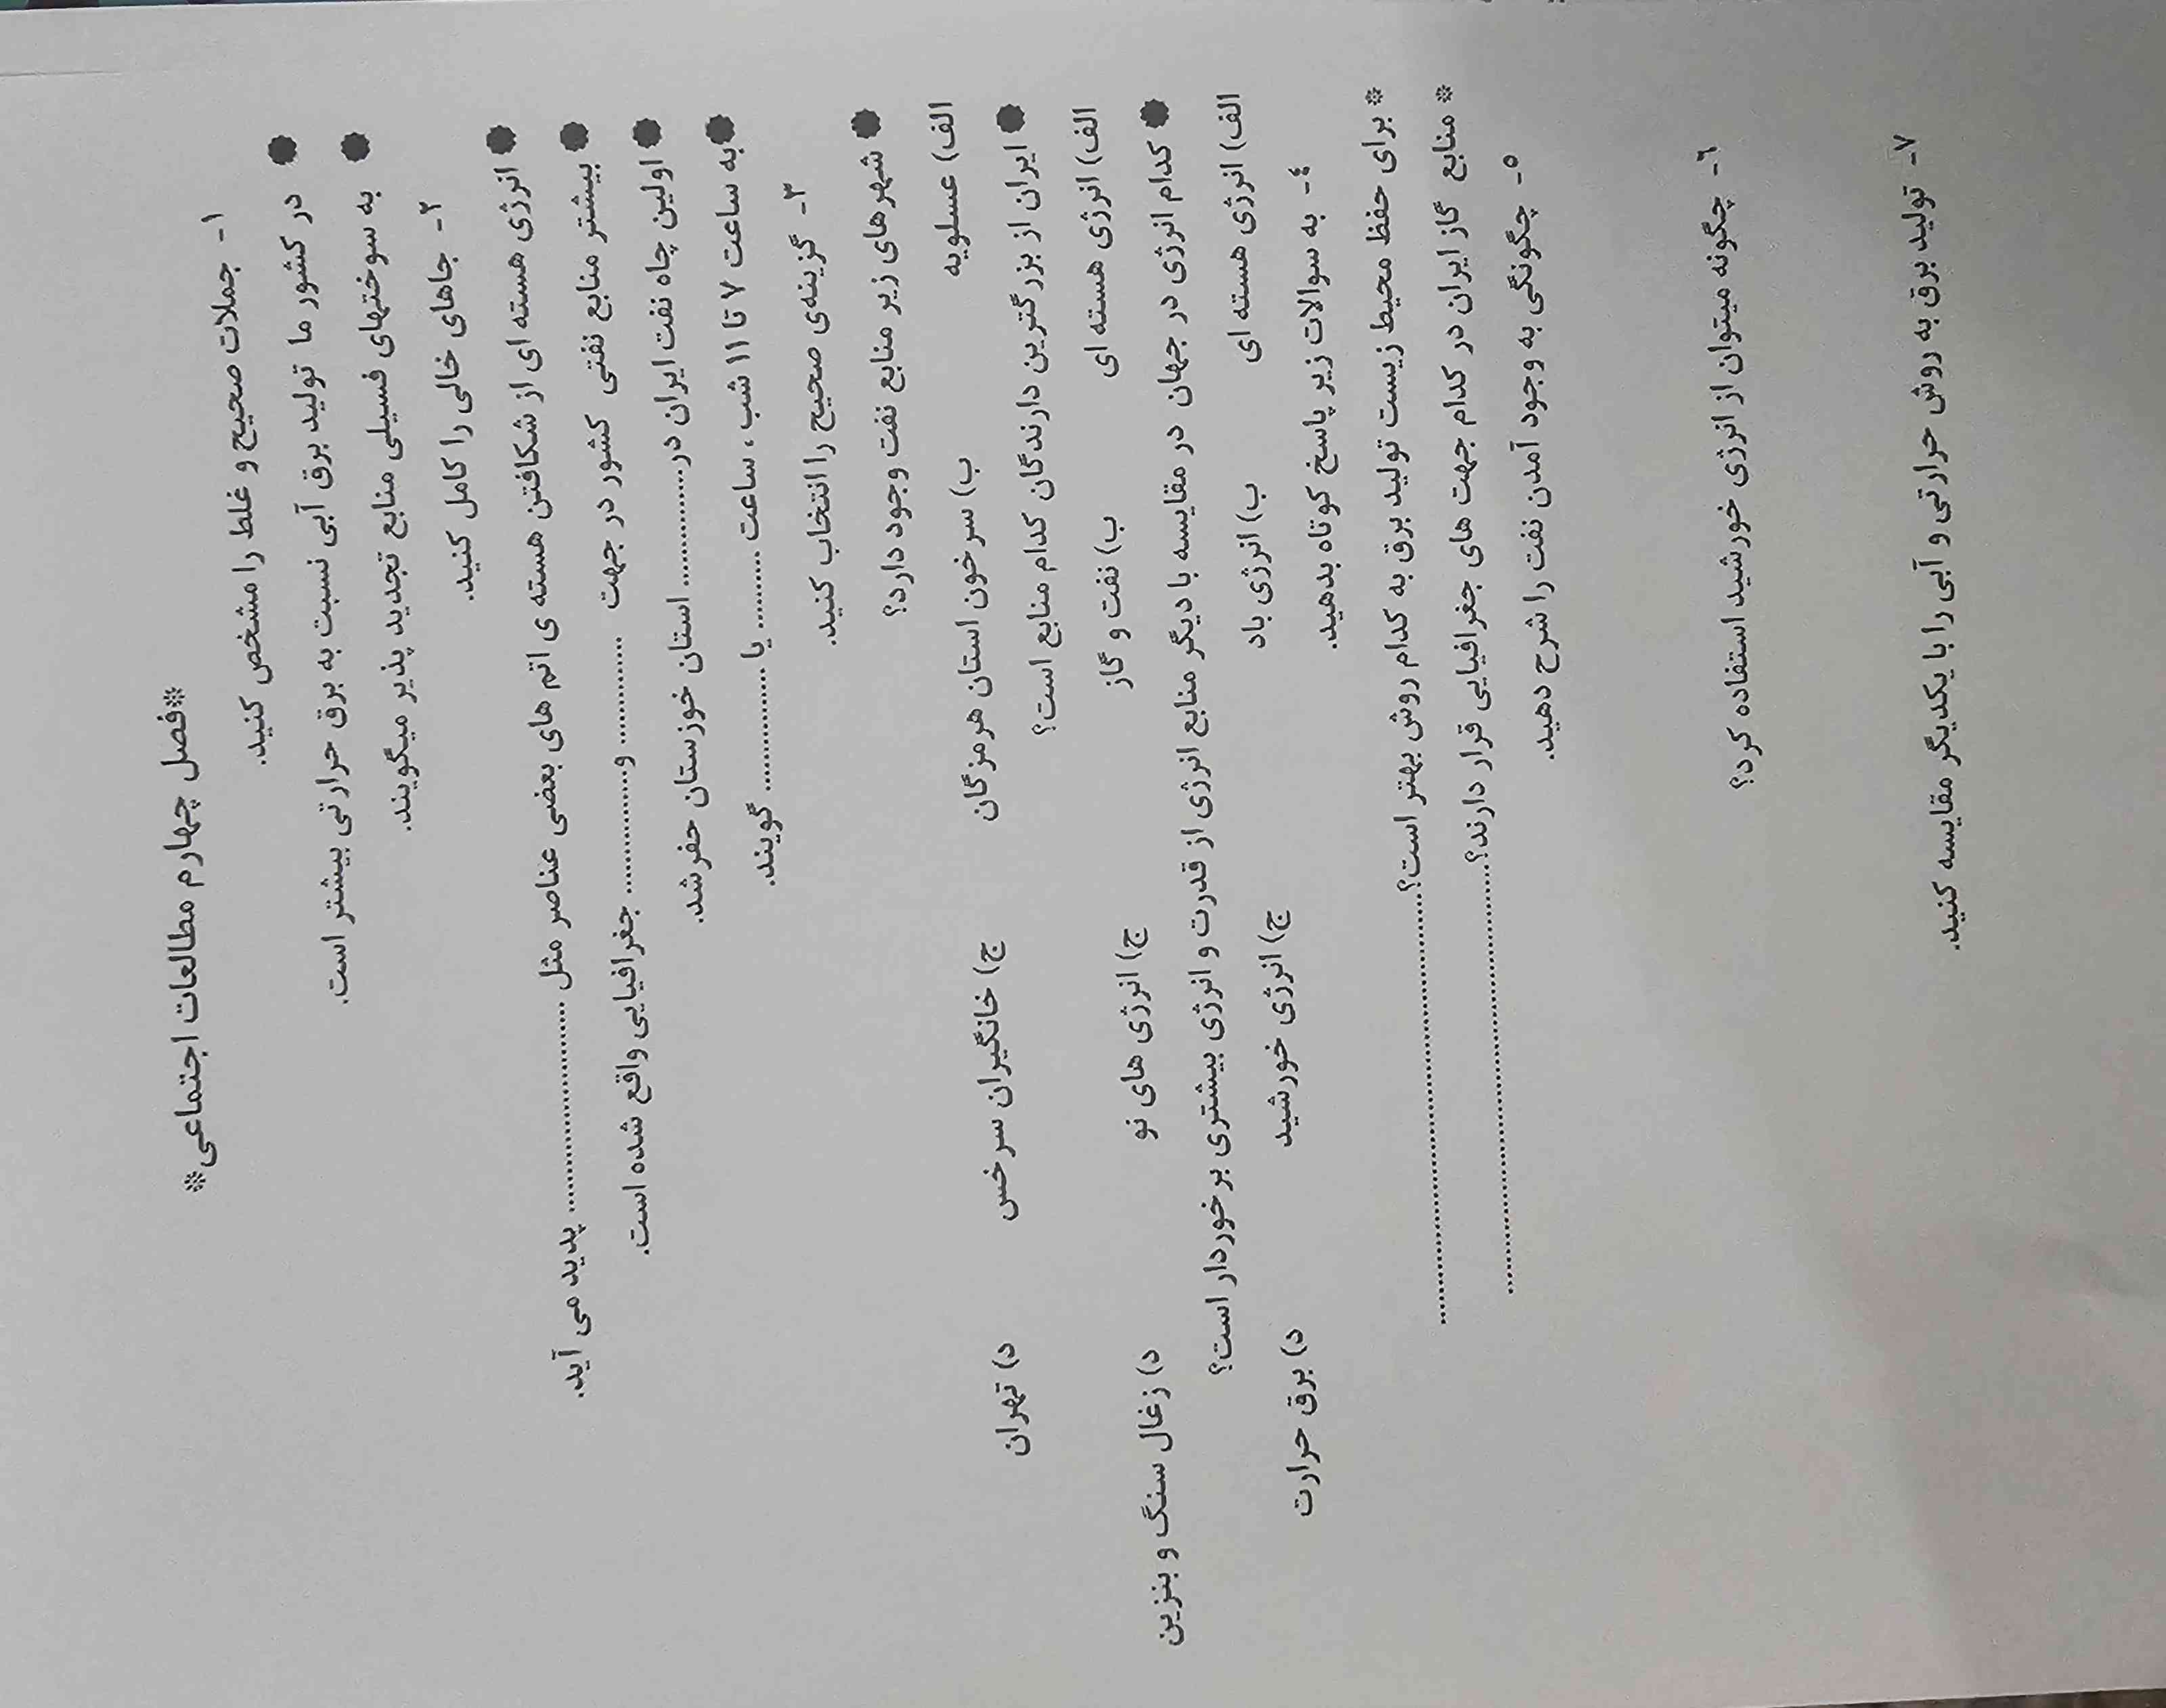 *فصل چهارم مطالعات اجتماعی*
۱- جملات صحیح و غلط را مشخص کنید.
در کشور ما تولید برق آبی نسبت به برق حرارتی بیشتر است.
به سوختهای فسیلی منابع تجدید پذیر میگویند.
۲- جاهای خالی را کامل کنید.
انرژی هسته ای از شکافتن هسته ی اتم های بعضی عناصر مثل ........................ پدید می آید.
بیشتر منابع نفتی کشور در جهت ............ و............... جغرافیایی واقع شده است.
اولین چاه نفت ایران در.............. استان خوزستان حفر شد.
به ساعت ۷ تا ۱۱ شب ، ساعت .......... یا .............. گویند.
۳- گزینه‌ی صحیح را انتخاب کنید.
شهرهای زیر منابع نفت وجود دارد؟
الف) عسلویه ب) سرخون استان هرمزگان ج) خانگیران سرخس د) تهران
ایران از بزرگترین دارندگان کدام منابع است؟
الف) انرژی هسته ای ب) نفت و گاز ج) انرژی های نو د) زغال سنگ و بنزین
کدام انرژی در جهان در مقایسه با دیگر منابع انرژی از قدرت و انرژی بیشتری برخوردار است؟
الف) انرژی هسته ای ب) انرژی باد ج) انرژی خورشید د) برق حرارت
٤- به سوالات زیر پاسخ کوتاه بدهید.
* برای حفظ محیط زیست تولید برق به کدام روش بهتر است؟..................................................
* منابع گاز ایران در کدام جهت های جغرافیایی قرار دارند؟..................................................
٥- چگونگی به وجود آمدن نفت را شرح دهید.
٦- چگونه میتوان از انرژی خورشید استفاده کرد؟
۷- تولید برق به روش حرارتی و آبی را با یکدیگر مقایسه کنید.